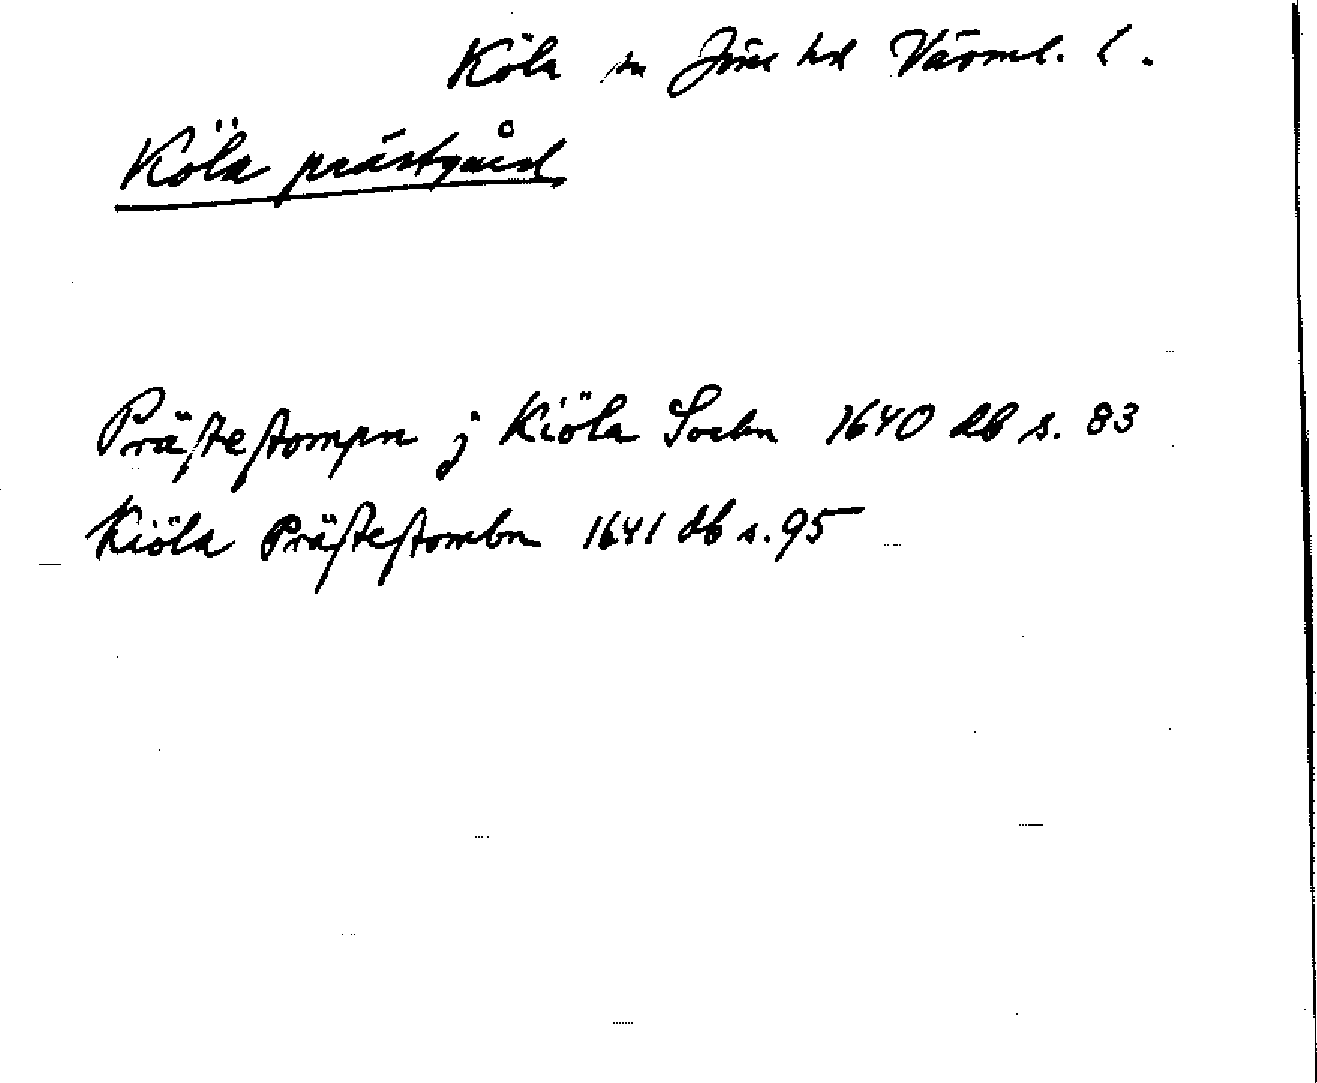 Köla sn Jösse hd Värml. l.
Köla prästgård
Prästestompn j Kiöla Sockn 1640 db s. 83
Kiöla Prästestombn 1641 db s. 95